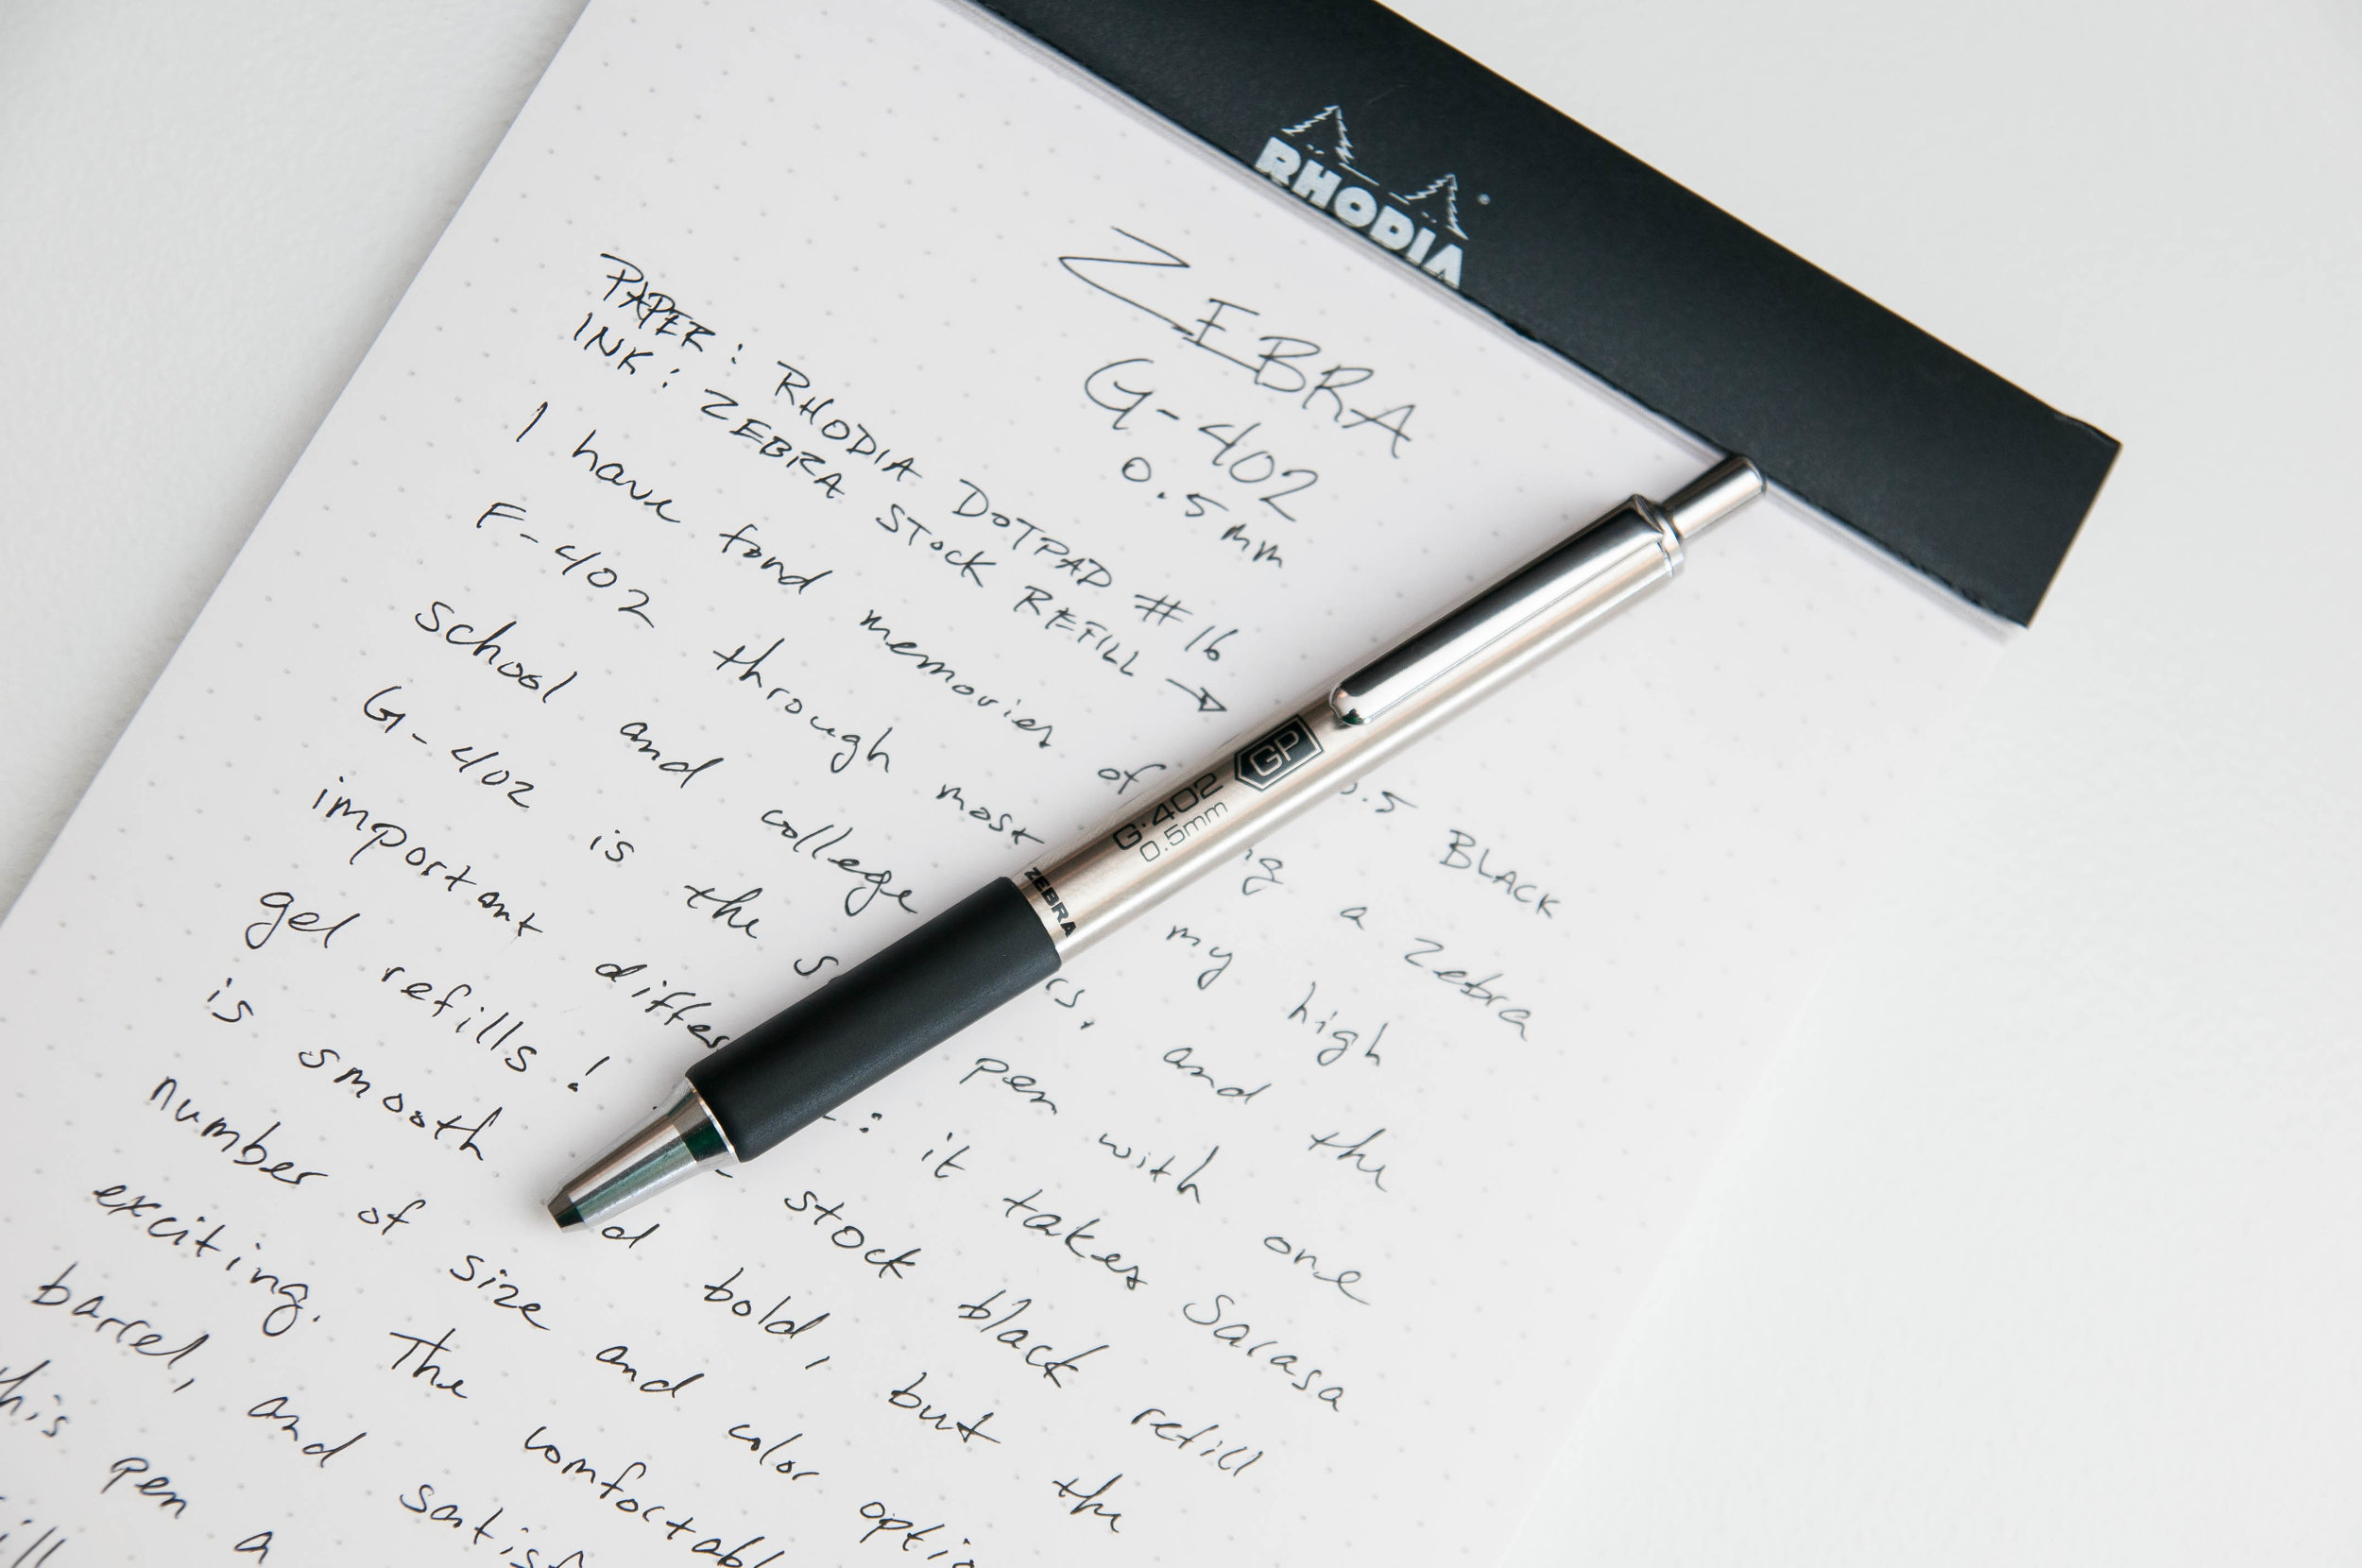 RHODIA
ZEBRA
G-402
0.5mm
PAPER: RHODIA DOTPAD #16
INK: ZEBRA STOCK REFILL → 0.5 BLACK
I have fond memories of a Zebra
F-402 through most my high
school and college and the
G-402 is the pen with one
important it takes Sarasa
gel refills! stock black refill
is smooth bold, but the
number of size and color
exciting. The
barrel, and
this pen a
GP
G-402
0.5mm
ZEBRA